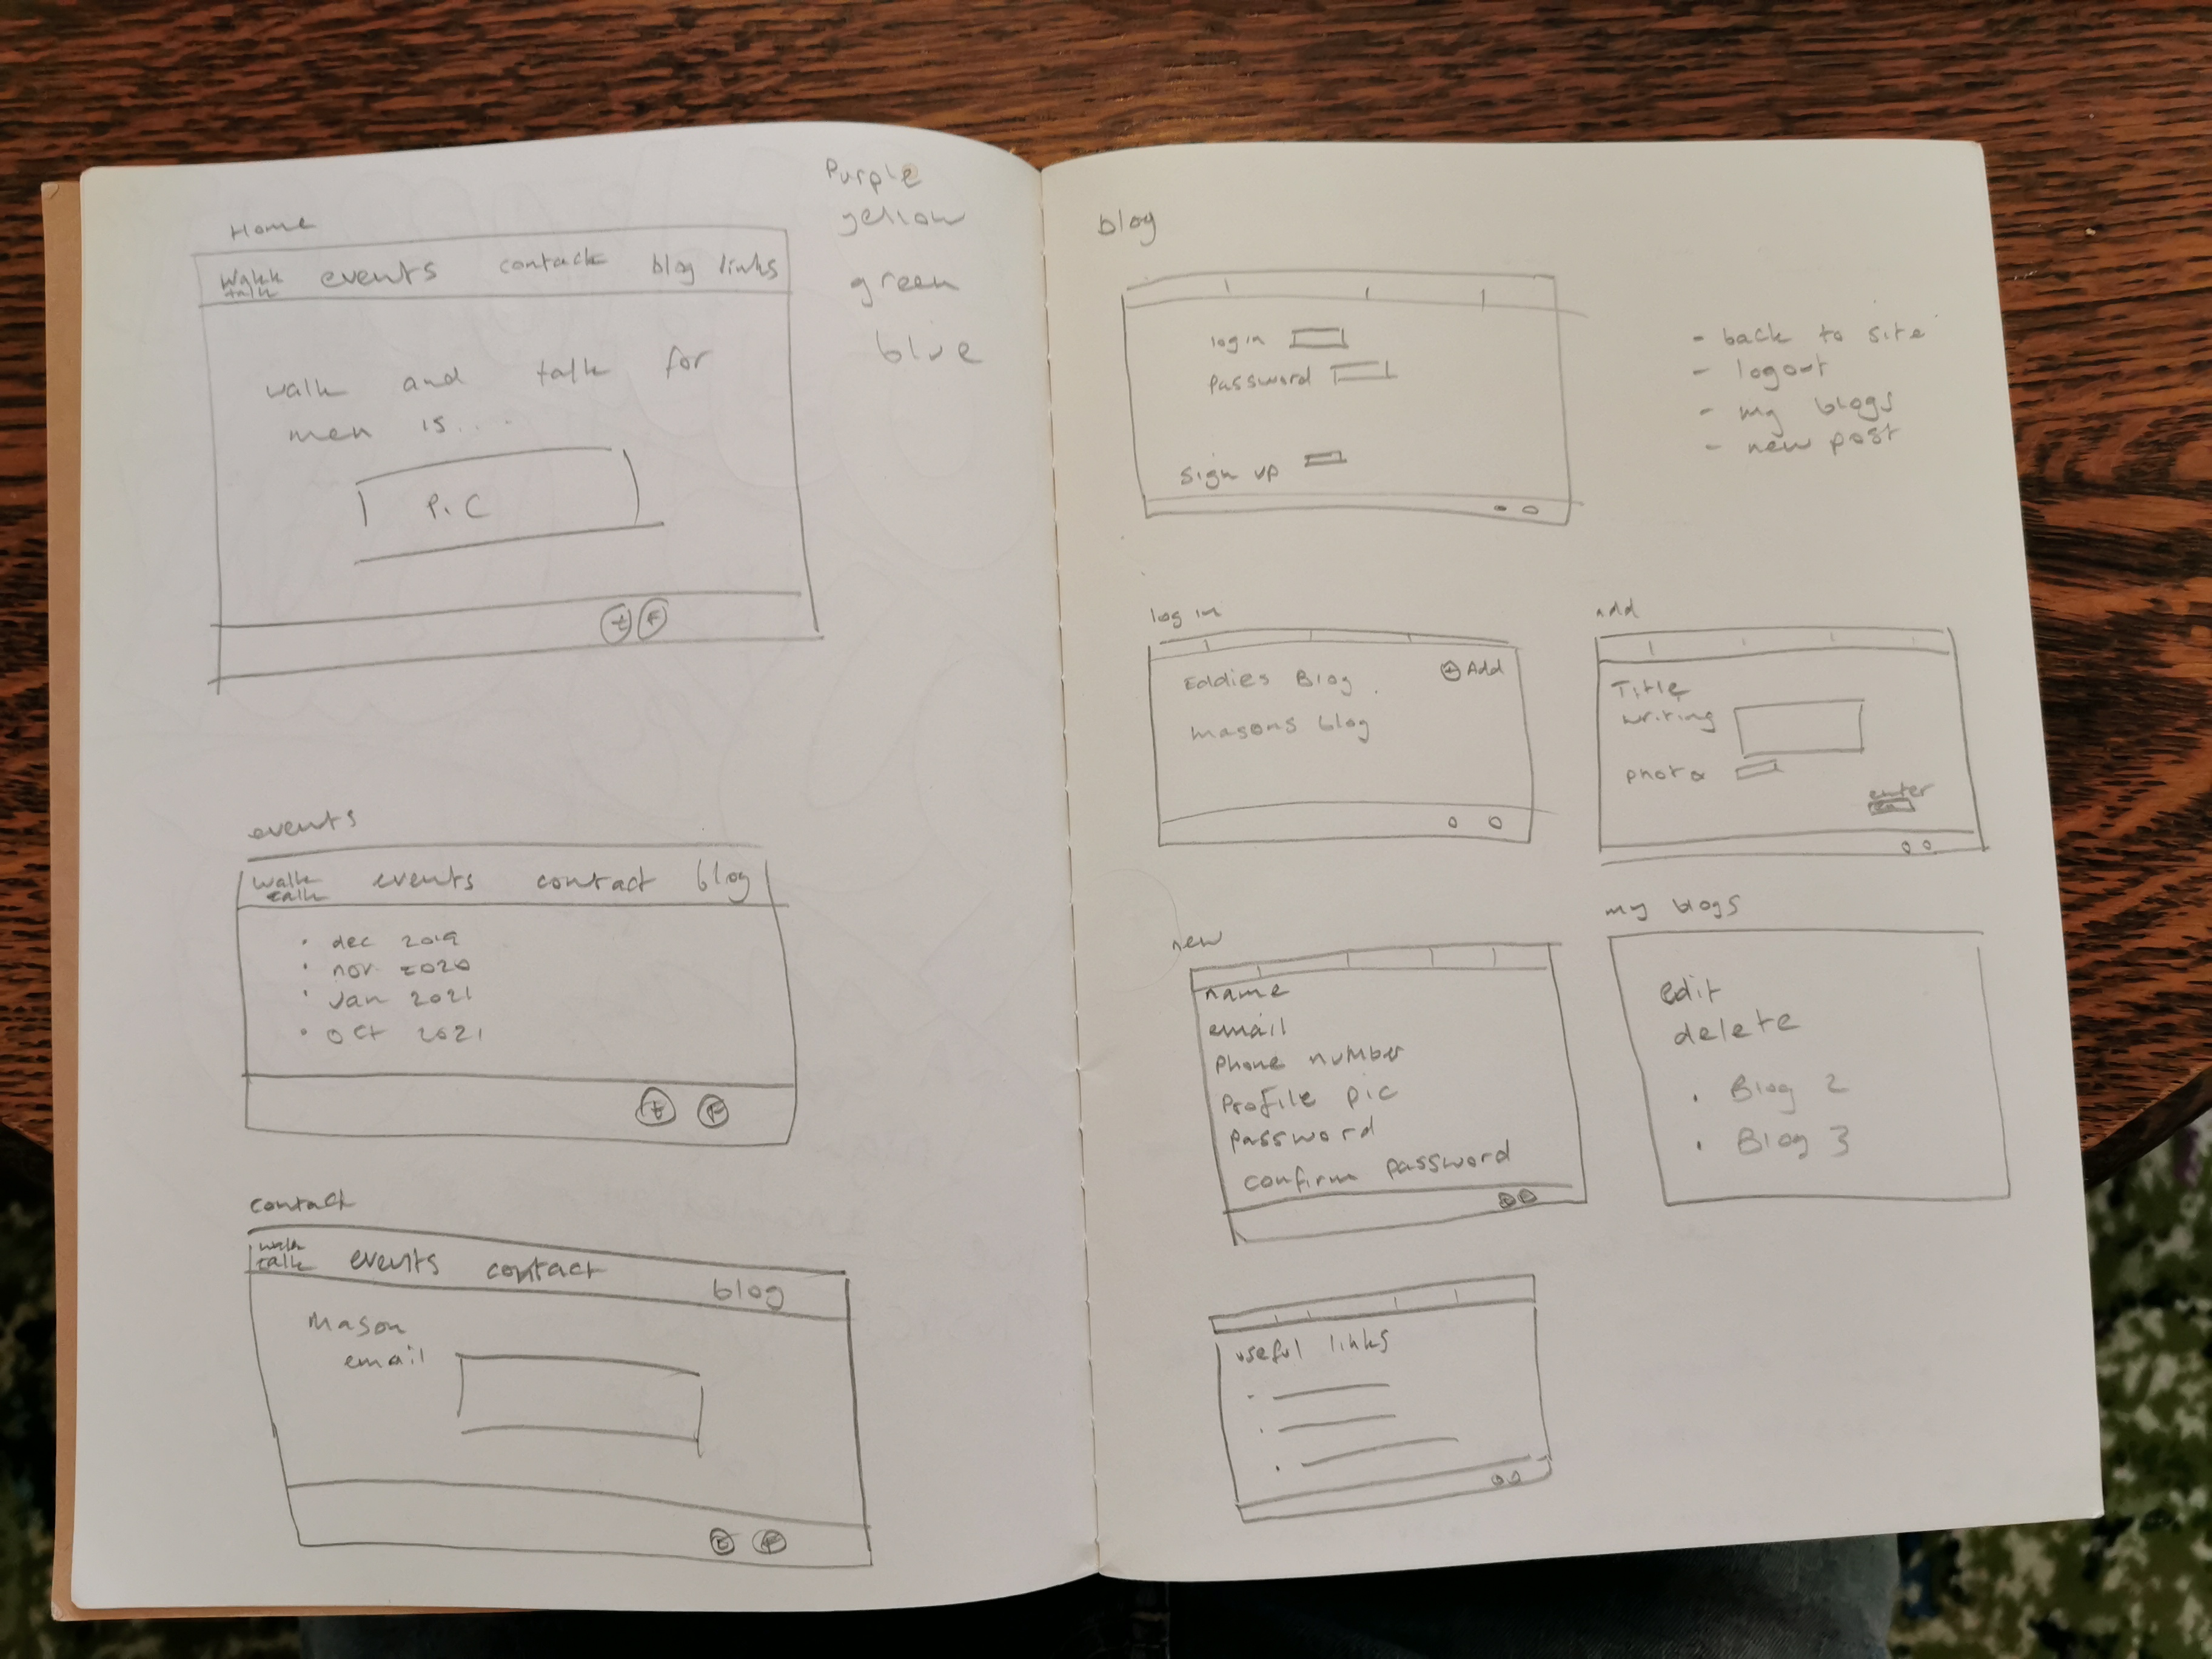 Home
walk events contack blog links
talk
walk and talk for
men is....
Pic
t F
Purple
yellow
green
blue
events
walk events contact blog
talk
• dec 2019
• nov 2020
• Jan 2021
• Oct 2021
t F
contact
walk events contact blog
talk
Mason
email
t F
blog
login
password
sign up
- back to site
- logout
- my blogs
- new post
log in
Eddies Blog.
+ Add
masons blog
add
Title
writing
photo
enter
new
name
email
phone number
profile pic
password
confirm password
my blogs
edit
delete
• Blog 2
• Blog 3
useful links